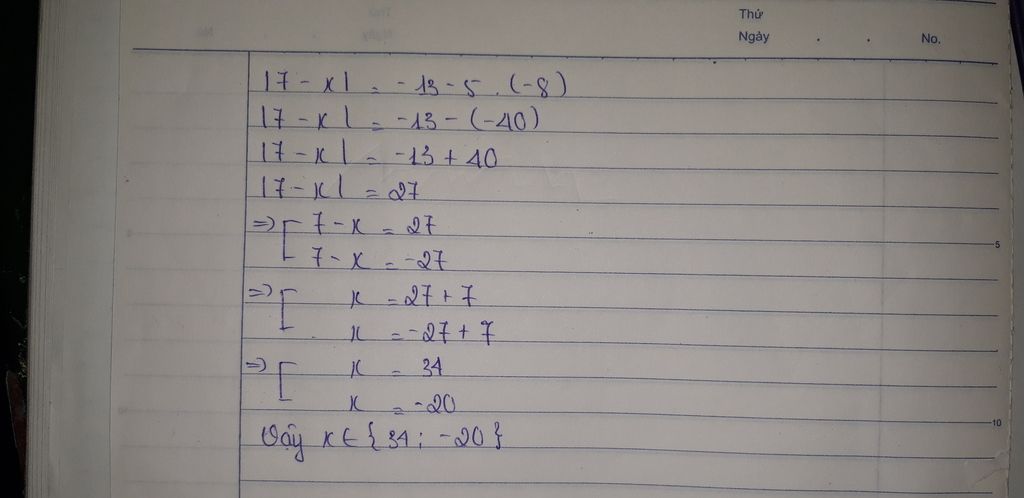 Thứ
Ngày . . No.
|7 - x| = -13 - 5 . (-8)
|7 - x| = -13 - (-40)
|7 - x| = -13 + 40
|7 - x| = 27
=> [ 7 - x = 27
7 - x = -27
5
=> [ x = 27 + 7
x = -27 + 7
=> [ x = 34
x = -20
10
Vậy x ∈ {34 ; -20}